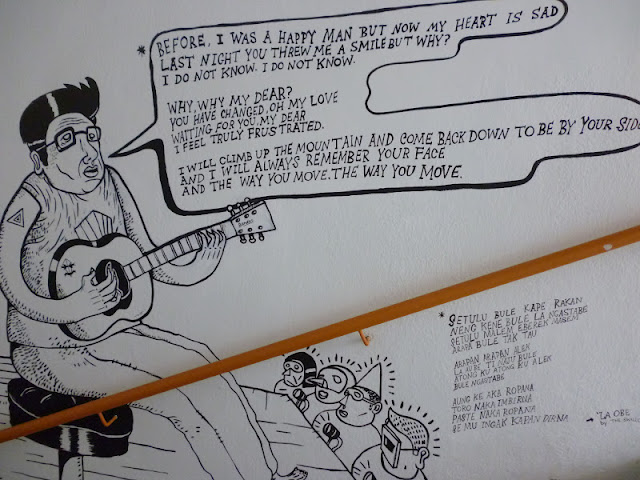 * BEFORE, I WAS A HAPPY MAN BUT NOW MY HEART IS SAD
LAST NIGHT YOU THREW ME A SMILE BUT WHY?
I DO NOT KNOW. I DO NOT KNOW.
WHY, WHY MY DEAR?
YOU HAVE CHANGED, OH MY LOVE
WAITING FOR YOU MY DEAR
I FEEL TRULY FRUSTRATED.
I WILL CLIMB UP THE MOUNTAIN AND COME BACK DOWN TO BE BY YOUR SIDE
AND I WILL ALWAYS REMEMBER YOUR FACE
AND THE WAY YOU MOVE. THE WAY YOU MOVE.
* SETULU BULE KAPE RAKAN
NENG KENE BULE LA NGASTABE
SETULU MALEM EBEREN MABEM
ALNK BULE TAK TAU
ABAPAN ABAPAN ALEK
ATONG KU ATONG KU ALEK
BULE NGASTABE
AUNG KE AKA ROPANA
TORO NAKA IMBIRUA
PASTE NAKA ROPANA
"LA OBE
by THE